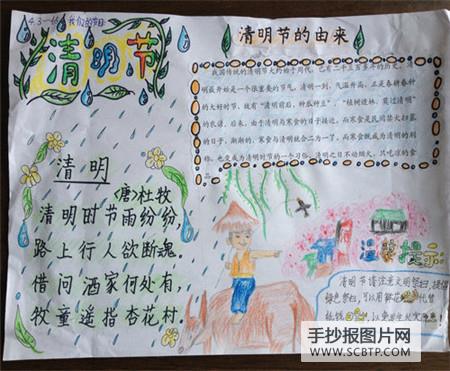 我们的节日
清明节
清明节的由来
我国传统的清明节大约始于周代，已有二千五百多年的历史。
明最开始是一个很重要的节气，清明一到，气温升高，正是春耕春种
的大好时节，故有“清明前后，种瓜种豆”、“植树造林，莫过清明”
的农谚。后来，由于清明与寒食的日子接近，而寒食是民间禁火扫墓
的日子，渐渐的，寒食与清明就合二为一了，而寒食既成为清明的别
称，也变成为清明时节的一个习俗，清明之日不动烟火，只吃凉的食
清明
(唐)杜牧
清明时节雨纷纷,
路上行人欲断魂。
借问酒家何处有,
牧童遥指杏花村.
温馨提示
清明节请注意文明祭扫,提倡
绿色祭扫,可以用鲜花代替
纸钱,以免发生火灾
手抄报图片网
WWW.SCBTP.COM